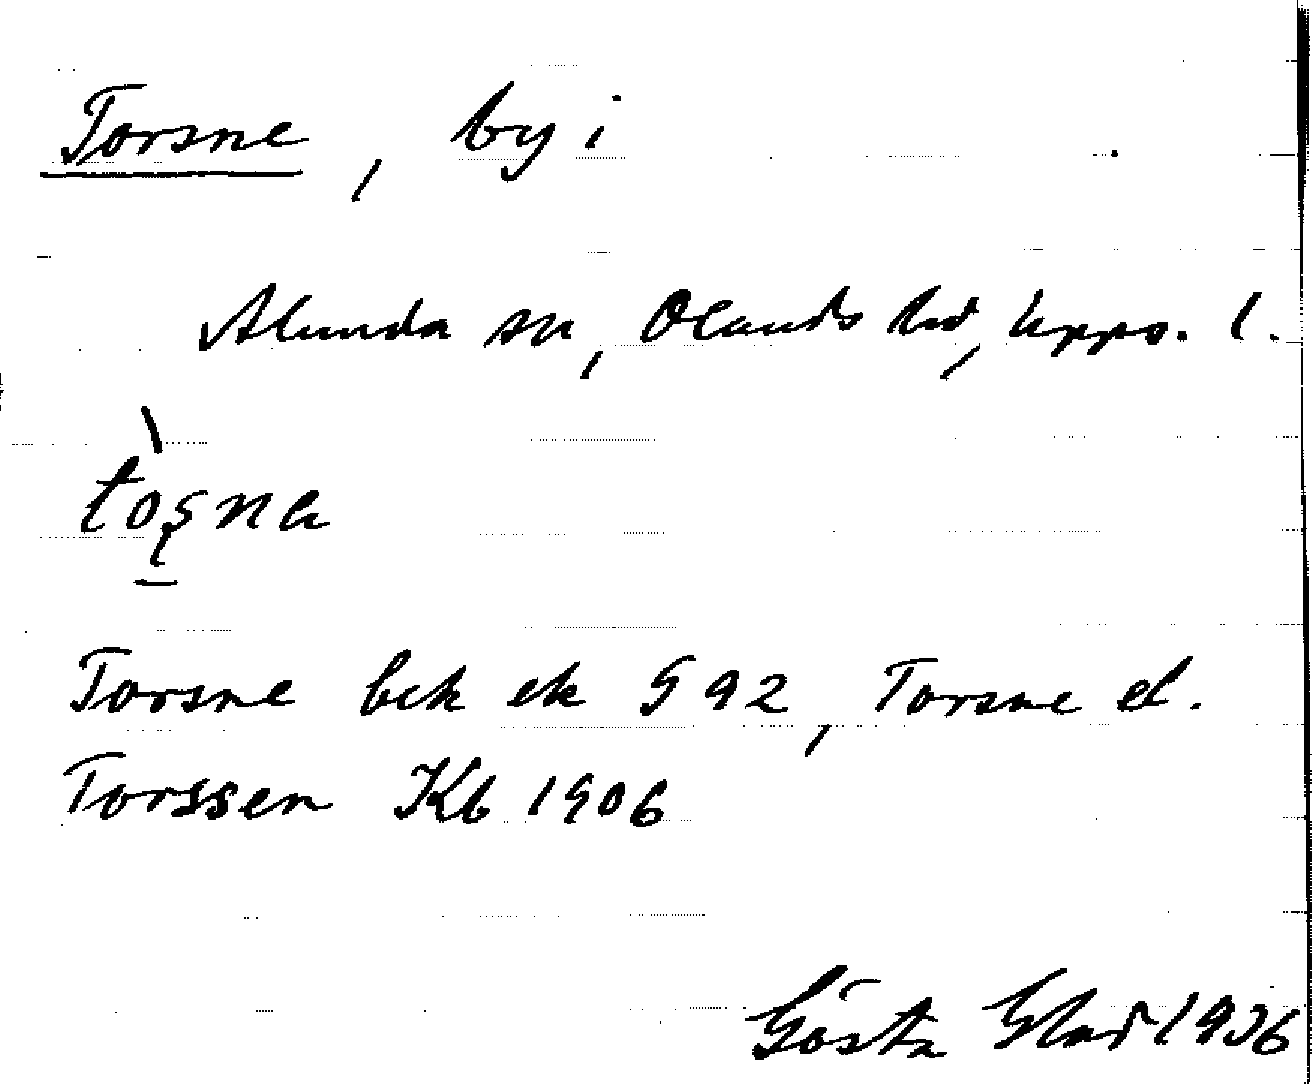 Torsne, by i
Alunda sn, Olands hd, Upps. l.
tòșna
Torsne bek ek G 92, Torsne el.
Torssen Kb 1906
Gösta 1936